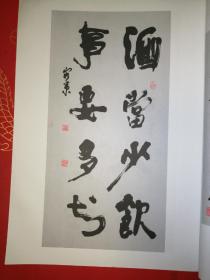 酒當少飲
事要多知